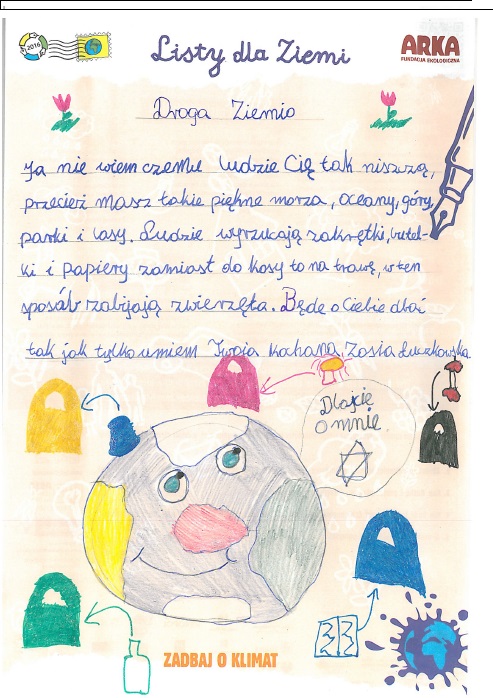 2016
Listy dla Ziemi
ARKA
FUNDACJA EKOLOGICZNA
Droga Ziemio
Ja nie wiem czemu ludzie Cię tak niszczą,
przecież masz takie piękne morza, oceany, góry,
parki i lasy. Ludzie wyrzucają zakrętki, butel-
ki i papiery zamiast do kosy to na trawę, w ten
sposób zabijają zwierzęta. Będę o Ciebie dbać
tak jak tylko umiem Twoja kochana Zosia Łuczkowska
Dbajcie
o mnie
ZADBAJ O KLIMAT